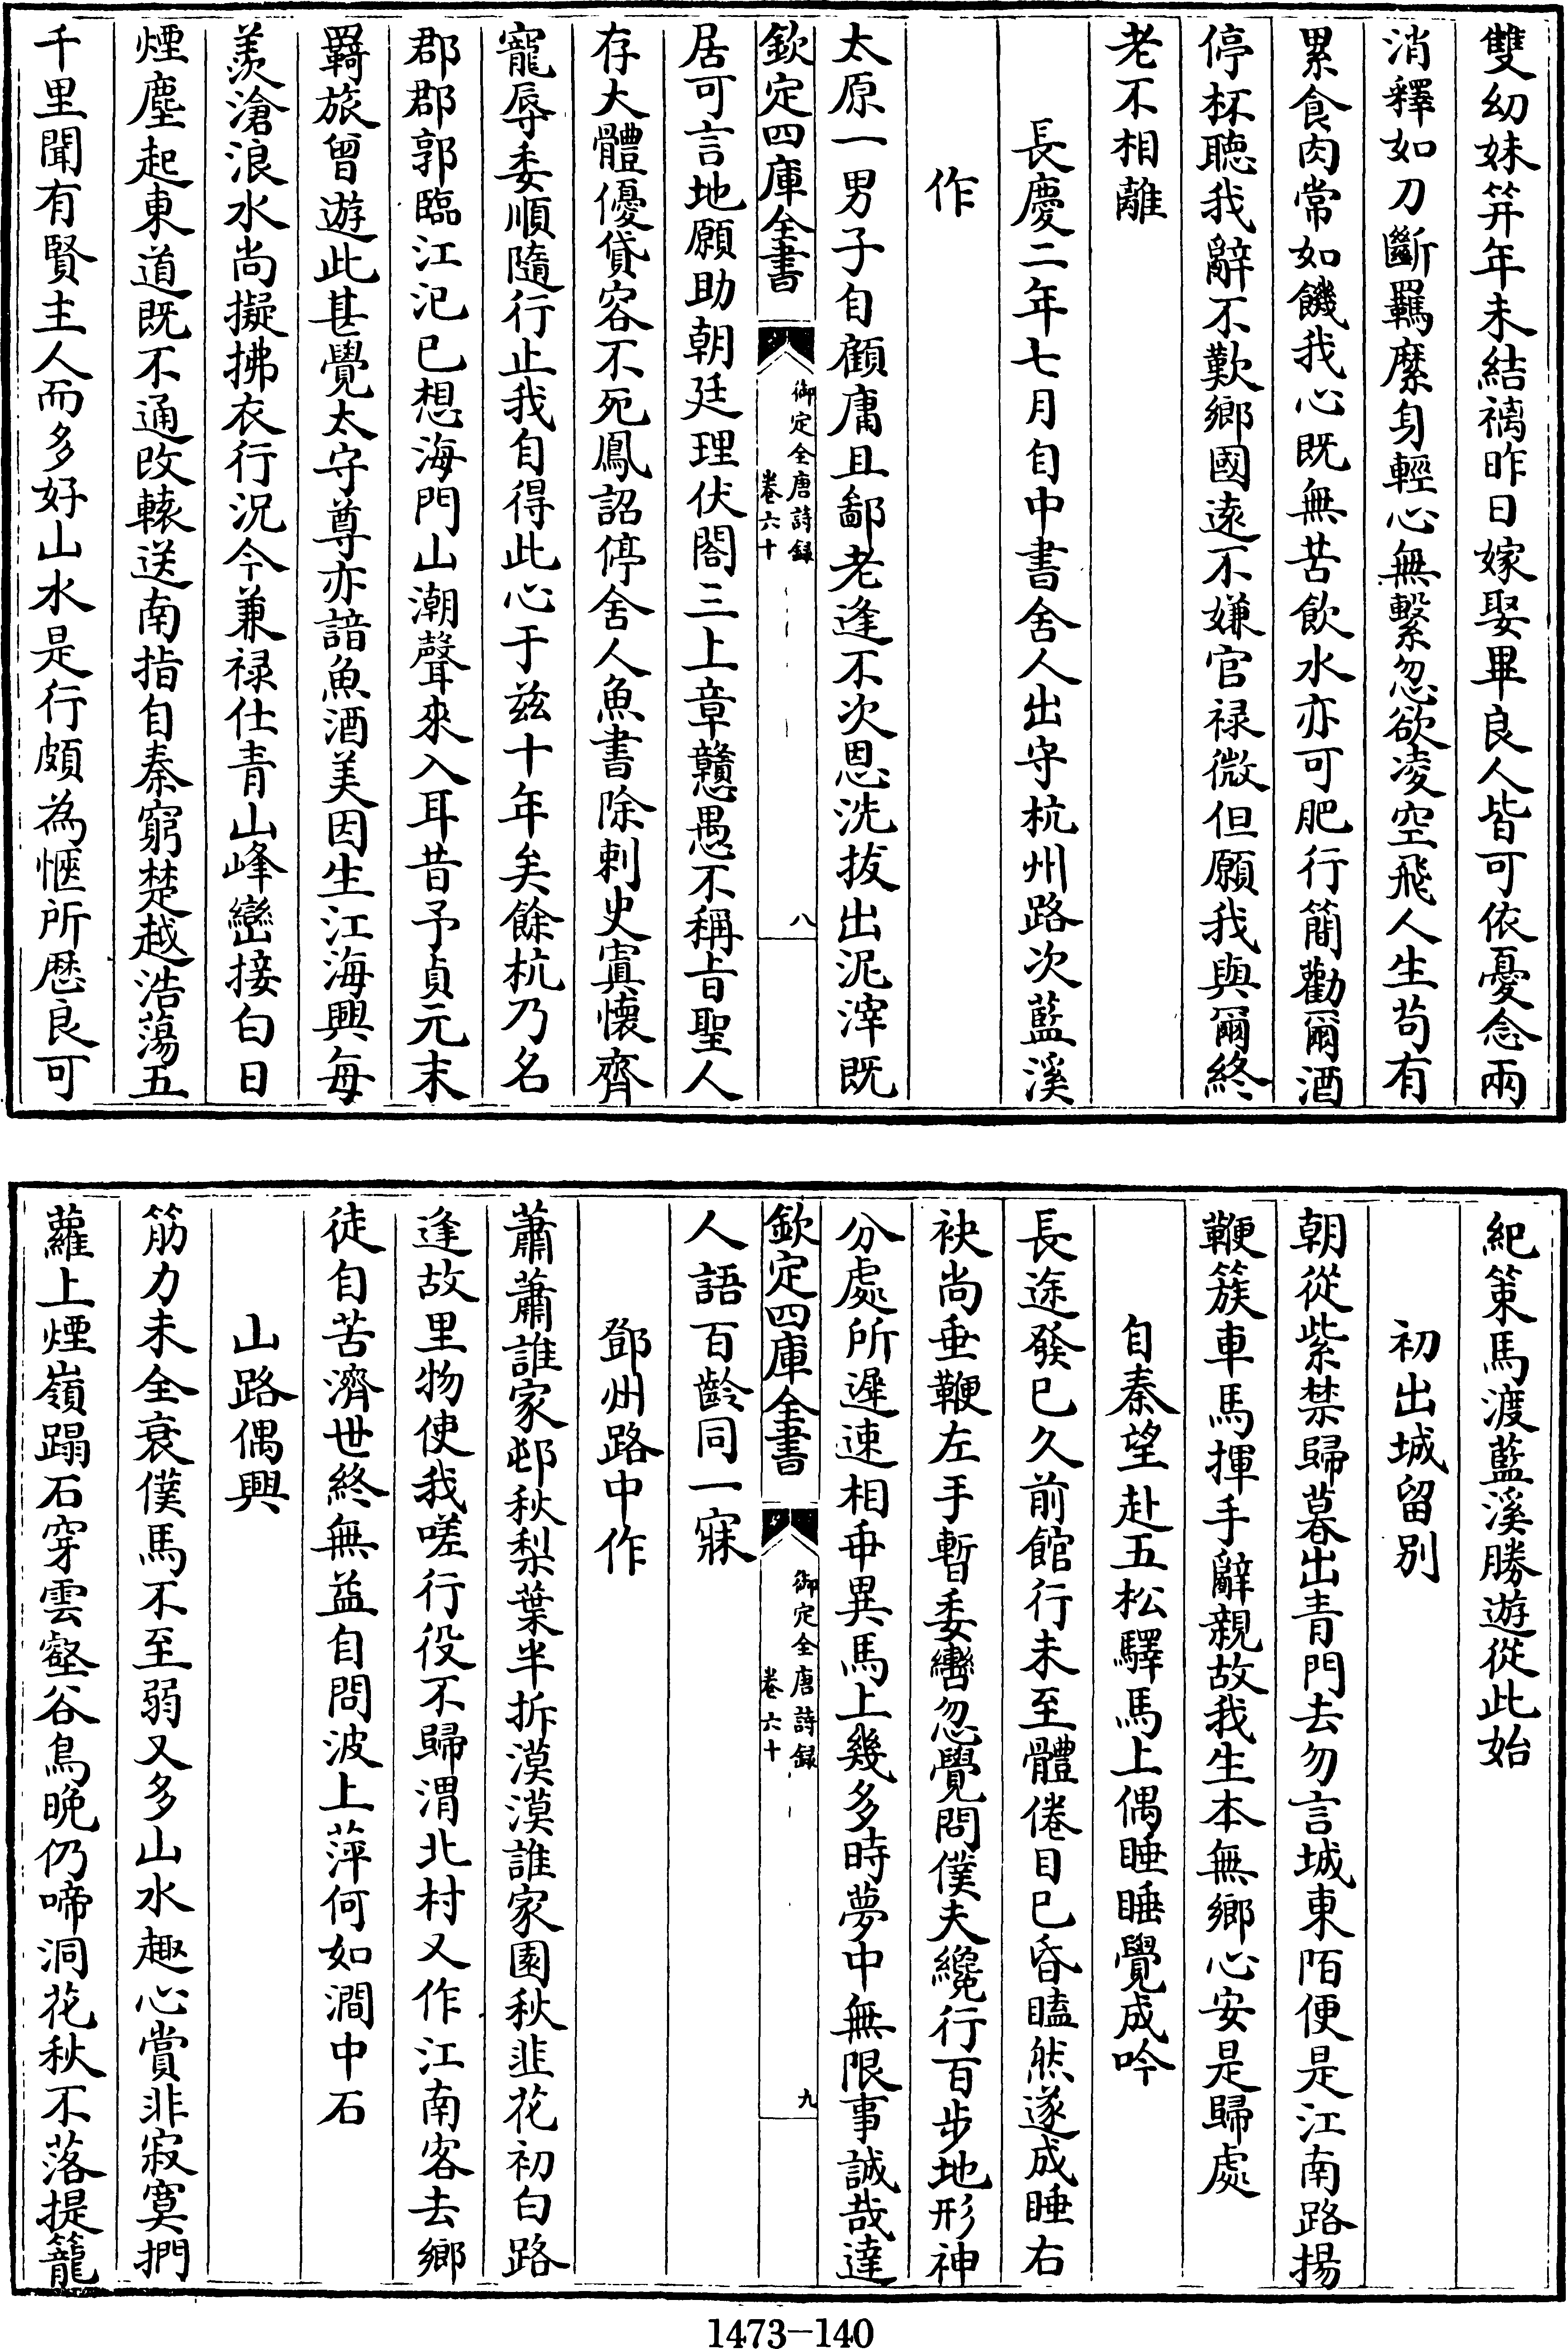 雙幼妹笄年未結褵昨日嫁娶畢良人皆可依憂念兩
消釋如刀斷羈縻身輕心無繫忽欲凌空飛人生苟有
累食肉常如饑我心既無苦飲水亦可肥行簡勸爾酒
停杯聽我辭不歎鄉國遠不嫌官禄微但願我與爾終
老不相離
長慶二年七月自中書舍人出守杭州路次藍溪
作
太原一男子自顧庸且鄙老逢不次恩洗拔出泥滓既
欽定四庫全書
御定全唐詩録
卷六十
八
居可言地願助朝廷理伏閤三上章戇愚不稱旨聖人
存大體優貸容不死鳳詔停舍人魚書除刺史寘懷齊
寵辱委順隨行止我自得此心于兹十年矣餘杭乃名
郡郡郭臨江汜已想海門山潮聲來入耳昔予貞元末
羇旅曾遊此甚覺太守尊亦諳魚酒美因生江海興每
羨滄浪水尚擬拂衣行況今兼禄仕青山峰巒接白日
煙塵起東道既不通改轅送南指自秦窮楚越浩蕩五
千里聞有賢主人而多好山水是行頗為愜所歴良可
紀策馬渡藍溪勝遊從此始
初出城留别
朝從紫禁歸暮出青門去勿言城東陌便是江南路揚
鞭簇車馬揮手辭親故我生本無鄉心安是歸處
自秦望赴五松驛馬上偶睡睡覺成吟
長途發已久前館行未至體倦目已昏瞌然遂成睡右
袂尚垂鞭左手暫委轡忽覺問僕夫纔行百步地形神
分處所遲速相乖異馬上幾多時夢中無限事誠哉達
欽定四庫全書
御定全唐詩録
卷六十
九
人語百齡同一寐
鄧州路中作
蕭蕭誰家邨秋梨葉半拆漠漠誰家園秋韭花初白路
逢故里物使我嗟行役不歸渭北村又作江南客去鄉
徒自苦濟世終無益自問波上萍何如澗中石
山路偶興
筋力未全衰僕馬不至弱又多山水趣心賞非寂寞捫
蘿上煙嶺蹋石穿雲壑谷鳥晚仍啼洞花秋不落提籠
1473-140